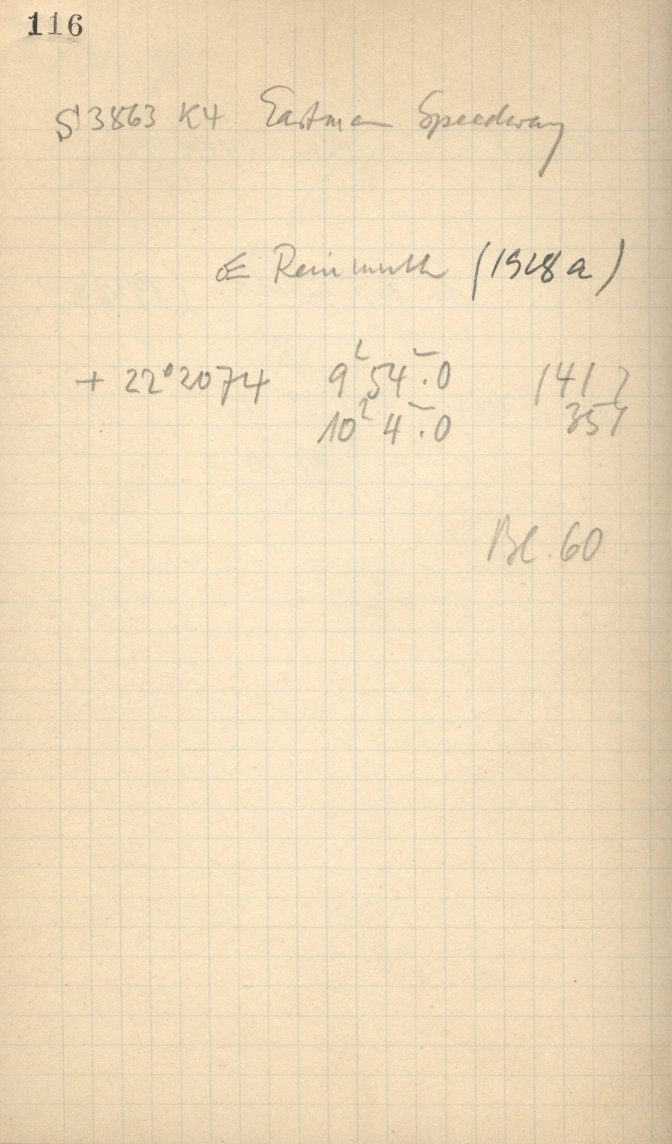 116
S 3863 K4 Eastman Speedway
☄ Reinmuth (1928 a)
+ 22° 2074 9ʰ 54ᵐ.0 1417
10ʰ 4ᵐ.0 351
Bl. 60